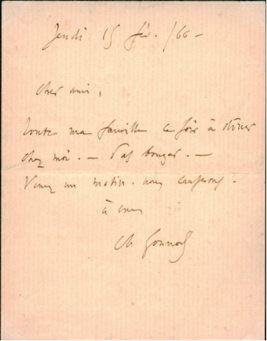 Jeudi 15 fév. /66 -
Cher ami,
toute ma famille ce soir à dîner
chez moi. - Pas bouger. -
Venez un matin. nous causerons.
à vous
Ch Gounod